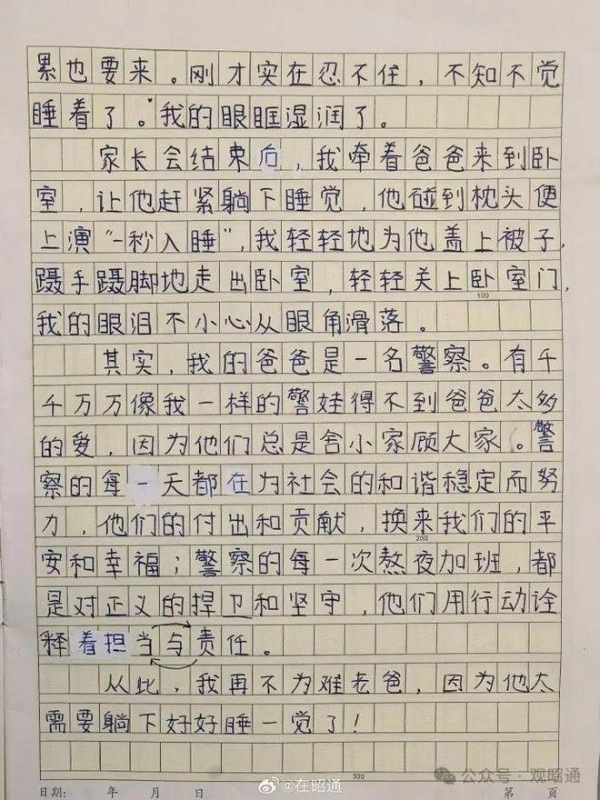 累也要来。刚才实在忍不住，不知不觉
睡着了。我的眼眶湿润了。
家长会结束后，我牵着爸爸来到卧
室，让他赶紧躺下睡觉，他碰到枕头便
上演“一秒入睡”，我轻轻地为他盖上被子，
蹑手蹑脚地走出卧室，轻轻关上卧室门，
100
我的眼泪不小心从眼角滑落。
其实，我的爸爸是一名警察。有千
千万万像我一样的警娃得不到爸爸太多
的爱，因为他们总是舍小家顾大家。警
察的每一天都在为社会的和谐稳定而努
力，他们的付出和贡献，换来我们的平
200
安和幸福；警察的每一次熬夜加班，都
是对正义的捍卫和坚守，他们用行动诠
释着担当与责任。
从此，我再不为难老爸，因为他太
需要躺下好好睡一觉了！
300
日期： 年 月 日 第 页
@在昭通
公众号·观昭通